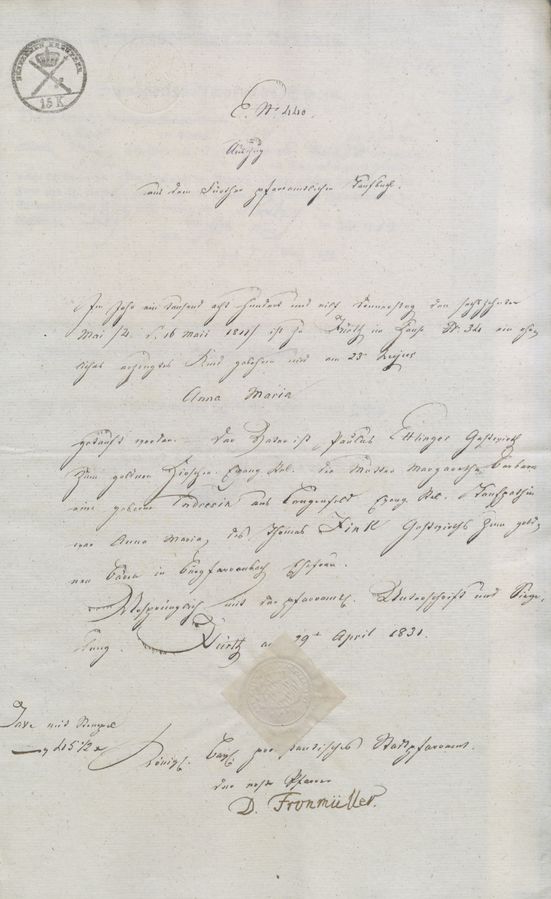 FUNFZEHEN KREUTZER
15 K
E. No. 440.
Auszug
aus dem Fürther pfarramtlichen Taufbuch.
Im Jahr ein tausend acht hundert und eilf Donnerstag den sechzehnten
Mai ist zu Fürth im Hause Nr. 344 ein ehe-
liches erzeugtes Kind geboren und am 23
Anna Maria
getauft worden. Der Vater ist Paulus Ettinger Gastwirth
zum goldnen Hirschen Evang. Rel. die Mutter Margaretha Barbara
eine geborne aus Langenfeld Evang. Rel. Taufpathin
war Anna Maria, des Thomas Fink Gastwirths zum gold-
nen Bären in Burgfarrnbach Ehefrau.
mit der pfarramtl. Unterschrift und Siege-
lung. Fürth am 29t April 1831.
Taxe mit Stempel
45 1/2 x
Königl. Bay. protestantisches Stadtpfarramt.
der erste Pfarrer
D. Fronmüller.